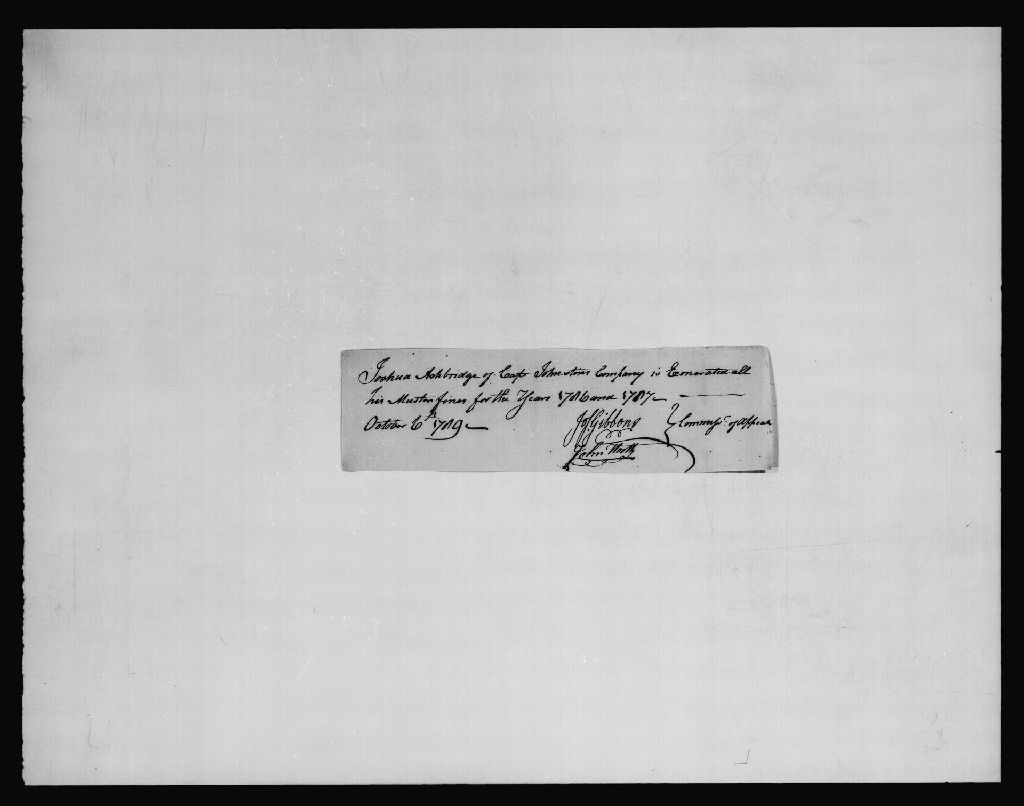 Joshua Ashbridge of Capt Johnstons Company is Exonorated all
his Muster fines for the Years 1786 and 1787 —
October 6th 1789 —
Jos Gibbons
John Worth
Commissrs. of Appeal